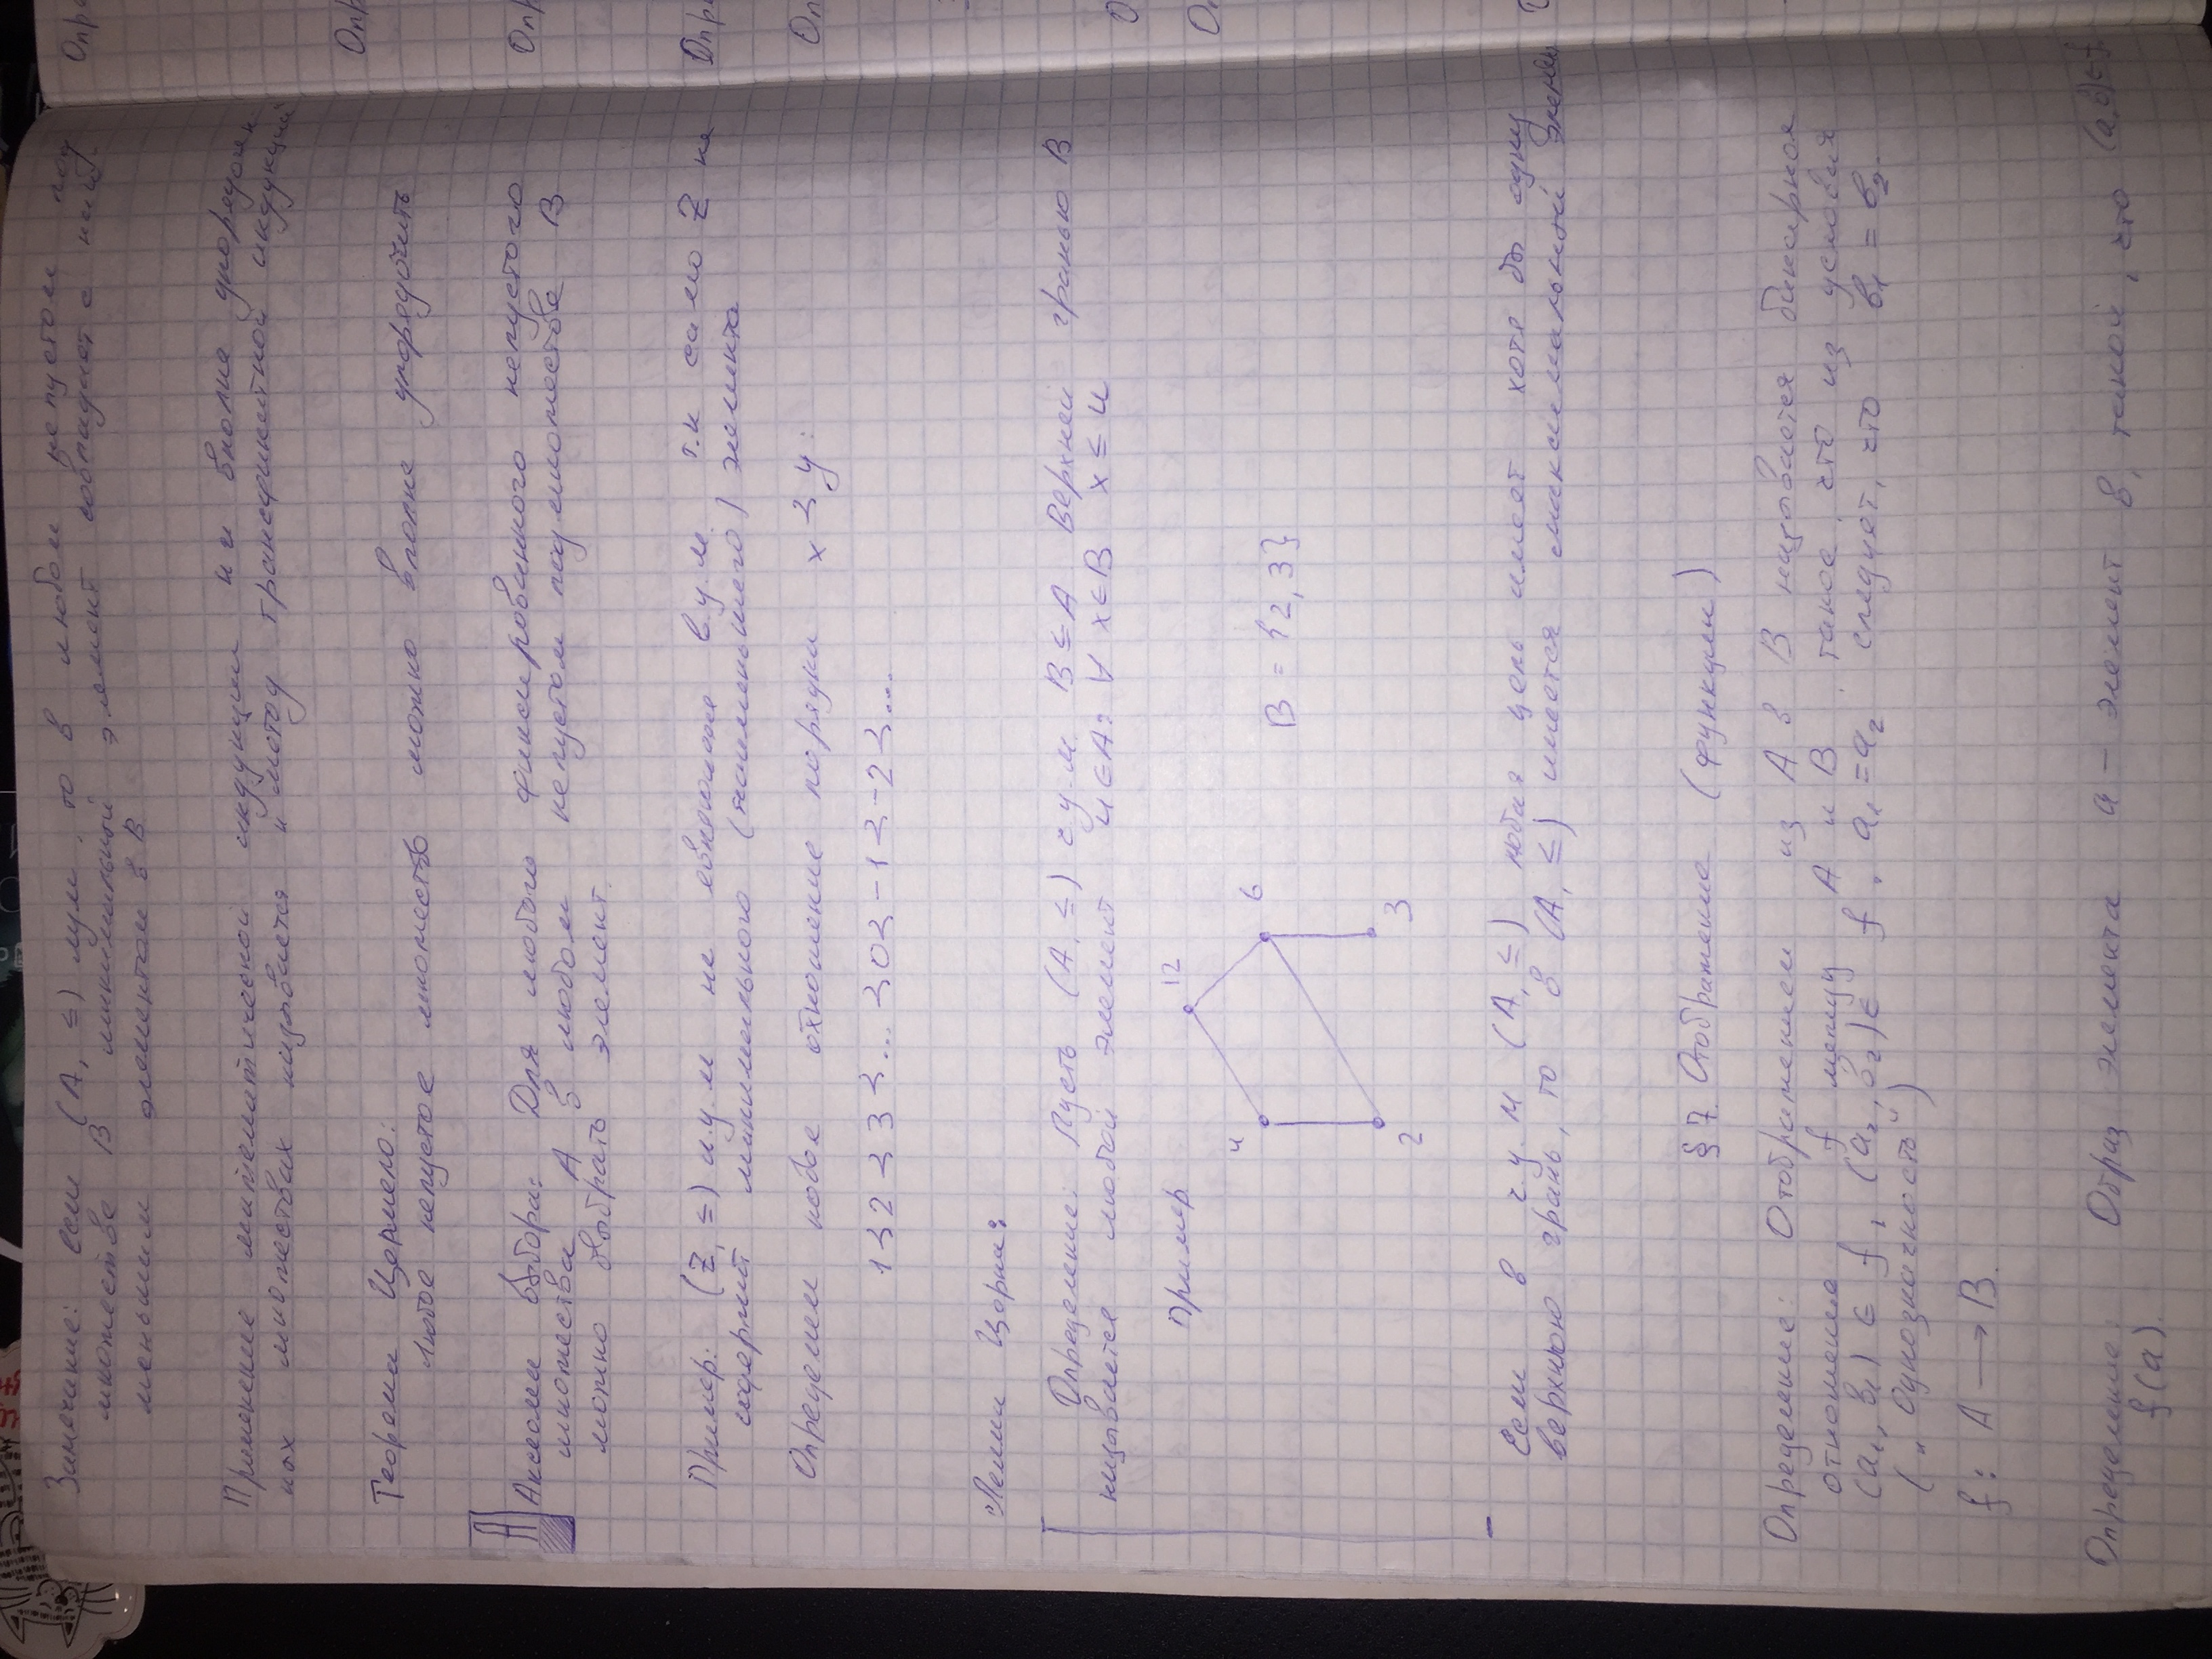 Замечание: если (A, ≤) лум, то в любом непустом под
множестве B минимальный элемент совпадает с наи-
меньшим элементом в B
Применение математической индукции на вполне упорядочен-
ных множествах называется метод трансфинитной индукции
Теорема Цермело:
Любое непустое множество можно вполне упорядочить
А
Аксиома выбора: Для любого фиксированного непустого
множества A в любом непустом подмножестве B
можно выбрать элемент.
Пример: (Z, ≤) л.у.м не является в.у.м. т.к само Z не
содержит минимального (наименьшего) элемента
Определим новое отношение порядка x ⊰ y:
1 ⊰ 2 ⊰ 3 ⊰ ... ⊰ 0 ⊰ -1 ⊰ -2 ⊰ ...
Лемма Цорна:
Определение: Пусть (A, ≤) ч.у.м. B ⊆ A Верхней гранью B
называется любой элемент u ∈ A: ∀ x ∈ B x ≤ u
Пример
12
4
6
B = {2, 3}
2
3
Если в ч.у.м (A, ≤) любая цепь имеет хотя бы одну
верхнюю грань, то в (A, ≤) имеется максимальный элемент
§ 7. Отображение (функции)
Определение: Отображением из A в B называется бинарное
отношение f между A и B, такое, что из условия
(a₁, b₁) ∈ f, (a₂, b₂) ∈ f, a₁ = a₂ следует, что b₁ = b₂.
(„Однозначность“)
f: A → B.
Определение: Образ элемента a – элемент b, такой, что (a, b) ∈ f.
f(a).